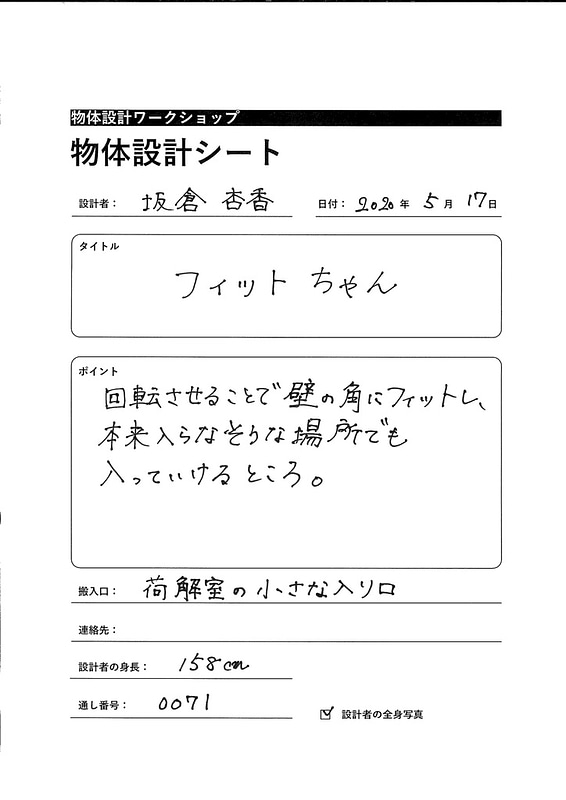 物体設計ワークショップ
物体設計シート
設計者: 坂倉 杏香 日付: 2020 年 5 月 17 日
タイトル
フィット ちゃん
ポイント
回転させることで壁の角にフィットし、
本来入らなそうな場所でも
入っていけるところ。
搬入口: 荷解室の小さな入り口
連絡先:
設計者の身長: 158cm
通し番号: 0071
☑ 設計者の全身写真